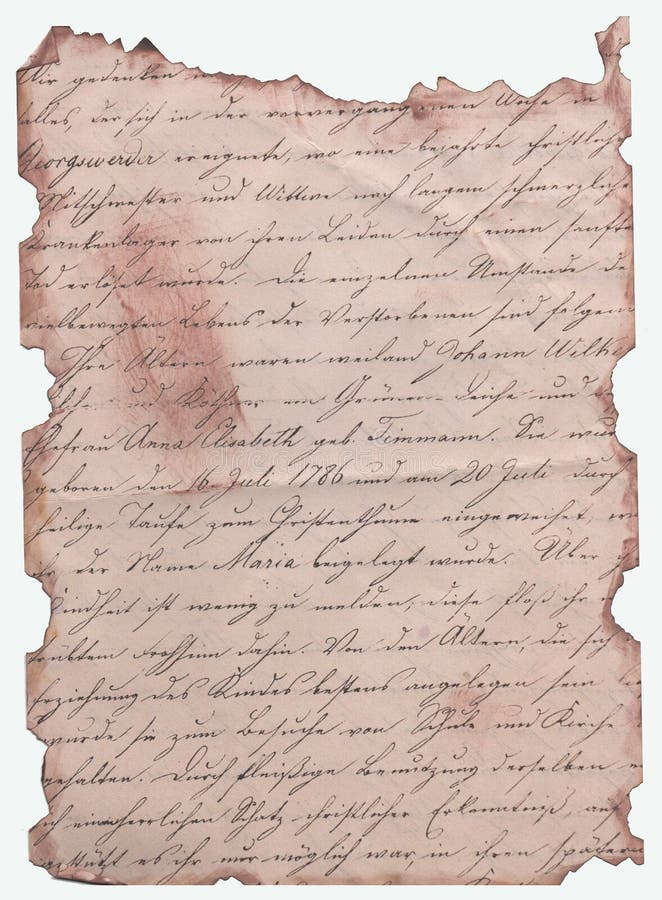 Wir gedenken
alles, der sich in der vorvergangenen Woche in
Georgswerder ereignete, wo eine bejahrte christliche
Mitschwester und Wittwe nach langem schmerzliche
Krankenlager von ihren Leiden durch einen sanfte
Tod erlöset wurde. Die einzelnen Umstande de
vielbewegten Lebens der Verstorbenen sind folgen
Ihre Ältern waren weiland Johann Wilh
und Köthner am Grünen Deiche und
Ehefrau Anna Elisabeth geb. Timmann. Sie wur
geboren den 16. Juli 1786 und am 20 Juli durch
heilige Taufe zum Christenthume eingeweihet, wo
ihr der Name Maria beigelegt wurde. Über
Kindheit ist wenig zu melden, diese floß ihr
trübtem Frohsinn dahin. Von den Ältern, die sich
Erziehung des Kindes bestens angelegen sein
wurde sie zum Besuche von Schule und Kirche
gehalten. Durch fleißige Benutzung derselben
ich einen herrlichen Schatz christlicher Erkenntniß, auf
gestützt es ihr nur möglich war, in ihren spätern